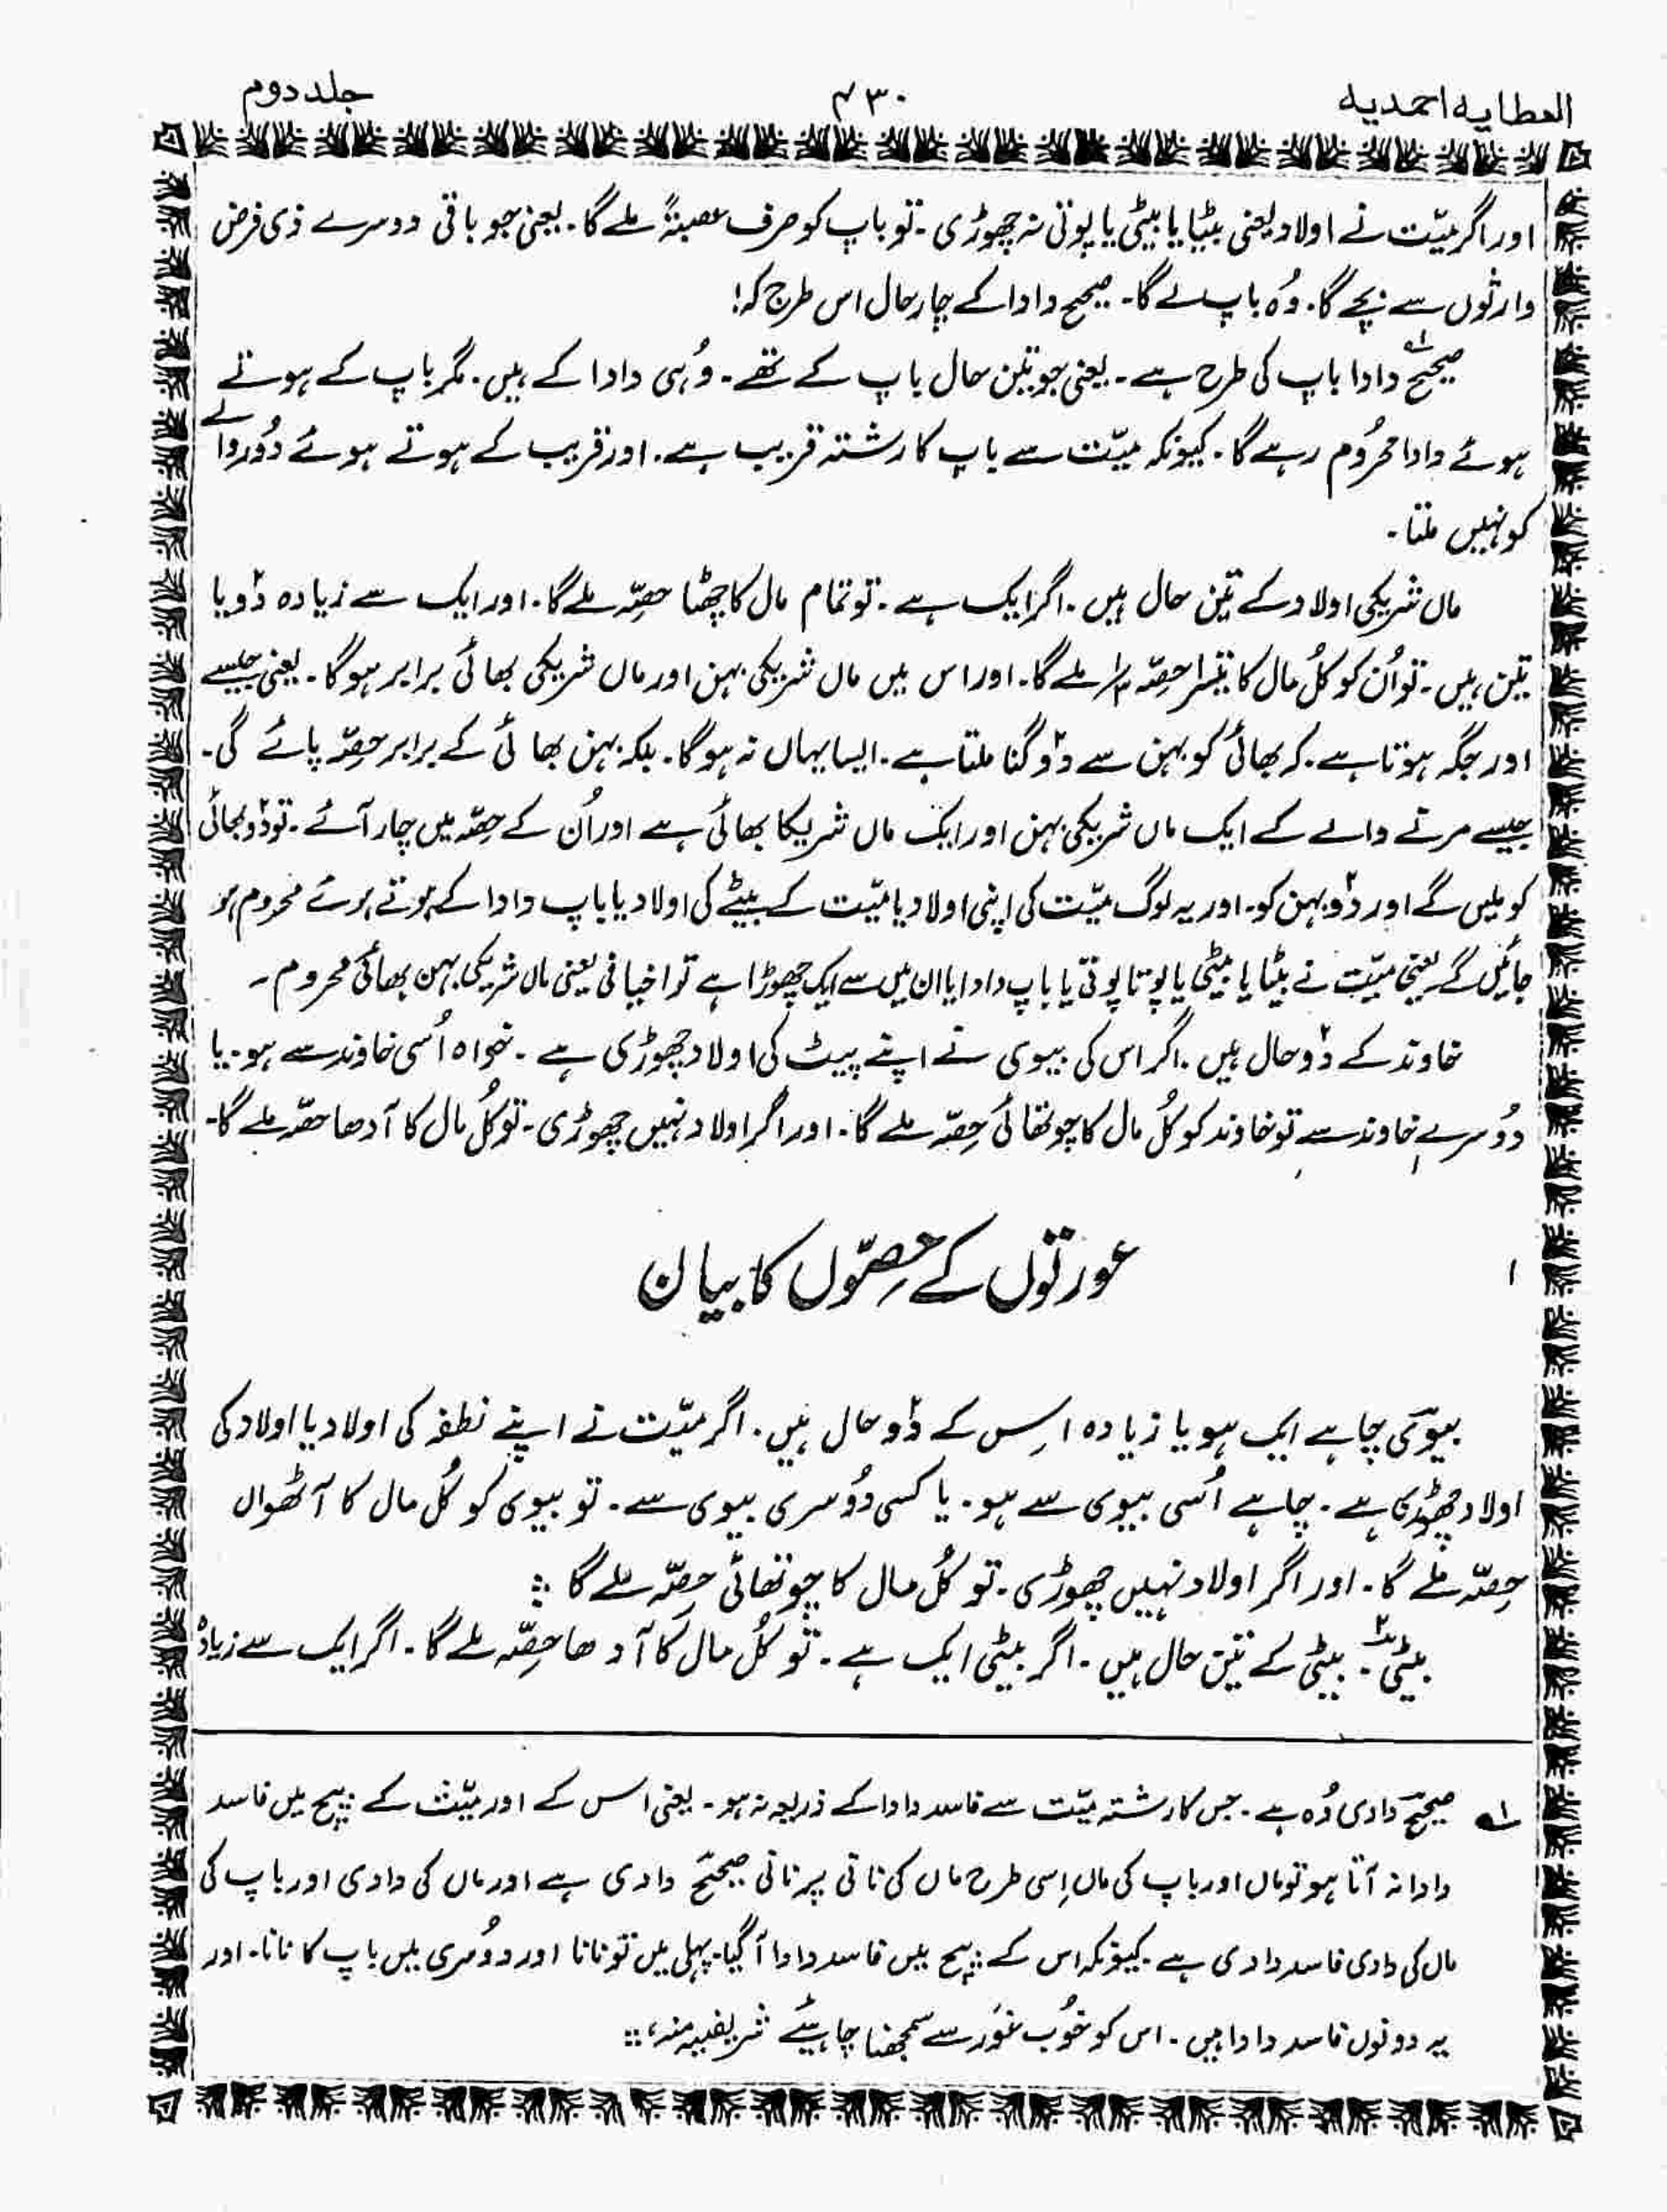 العطایہ احمدیہ
۴۳۰
جلد دوم
اور اگر میّت نے اولاد یعنی بیٹا یا بیٹی یا پوتی نہ چھوڑی ۔ تو باپ کو صرف عصبتہً ملے گا ۔ یعنی جو باقی دوسرے ذی فرض
وارثوں سے بچے گا ۔ وُہ باپ لے گا ۔ صحیح دادا کے چار حال اس طرح کہ !
صحیح ۱؎ دادا باپ کی طرح ہے ۔ یعنی جو تین حال باپ کے تھے ۔ وُہی دادا کے ہیں ۔ مگر باپ کے ہوتے
ہوئے دادا محرُوم رہے گا ۔ کیونکہ میّت سے باپ کا رشتہ قریب ہے ۔ اور قریب کے ہوتے ہوئے دُور والے
کو نہیں ملتا ۔
ماں شریکی اولاد کے تین حال ہیں ۔ اگر ایک ہے ۔ تو تمام مال کا چھٹا حصّہ ملے گا ۔ اور ایک سے زیادہ دو یا
تین ہیں ۔ تو اُن کو کُل مال کا تیسرا حِصّہ ۱/۳ ملے گا ۔ اور اس میں ماں شریکی بہن اور ماں شریکی بھائی برابر ہو گا ۔ یعنی جیسے
اور جگہ ہوتا ہے ۔ کہ بھائی کو بہن سے دو گنا ملتا ہے ۔ ایسا یہاں نہ ہو گا ۔ بلکہ بہن بھائی کے برابر حِصّہ پائے گی ۔
جیسے مرتے والے کے ایک ماں شریکی بہن اور ایک ماں شریکا بھائی ہے اور اُن کے حِصّہ میں چار آئے ۔ تو دو بھائی
کو ملیں گے اور دو بہن کو ۔ اور یہ لوگ میّت کی اپنی اولاد یا میّت کے بیٹے کی اولاد یا باپ دادا کے ہوتے ہوئے محروم ہو
جائیں گے یعنی میّت نے بیٹا یا بیٹی یا پوتا پوتی یا باپ دادا یا ان میں سے ایک چھوڑا ہے تو اخیافی یعنی ماں شریکی بہن بھائی محروم ۔
خاوند کے دو حال ہیں ۔ اگر اس کی بیوی نے اپنے پیٹ کی اولاد چھوڑی ہے ۔ خواہ اُسی خاوند سے ہو ۔ یا
دُوسرے خاوند سے تو خاوند کو کُل مال کا چوتھائی حِصّہ ملے گا ۔ اور اگر اولاد نہیں چھوڑی ۔ تو کُل مال کا آدھا حصّہ ملے گا ۔
عورتوں کے حِصّوں کا بیان
بیوی چاہے ایک ہو یا زیادہ اِس کے دو حال ہیں ۔ اگر میّت نے اپنے نطفہ کی اولاد یا اولاد کی
اولاد چھوڑی ہے ۔ چاہے اُسی بیوی سے ہو ۔ یا کسی دُوسری بیوی سے ۔ تو بیوی کو کُل مال کا آٹھواں
حِصّہ ملے گا ۔ اور اگر اولاد نہیں چھوڑی ۔ تو کُل مال کا چوتھائی حِصّہ ملے گا ::
بیٹی ۲ ۔ بیٹی کے تین حال ہیں ۔ اگر بیٹی ایک ہے ۔ تو کُل مال کا آدھا حِصّہ ملے گا ۔ اگر ایک سے زیادہ
۱؎ صحیح دادی وُہ ہے ۔ جس کا رشتہ میّت سے فاسد دادا کے ذریعہ نہ ہو ۔ یعنی اس کے اور میّت کے بیچ میں فاسد
دادا نہ آتا ہو تو ماں اور باپ کی ماں اِسی طرح ماں کی نانی پرنانی صحیح دادی ہے اور ماں کی دادی اور باپ کی
ماں کی دادی فاسد دادی ہے ۔ کیونکہ اس کے بیچ میں فاسد دادا آ گیا ۔ پہلی میں تو نانا اور دوُسری میں باپ کا نانا ۔ اور
یہ دونوں فاسد دادا ہیں ۔ اس کو خُوب غور سے سمجھنا چاہیئے شریفیہ منہ ، ::